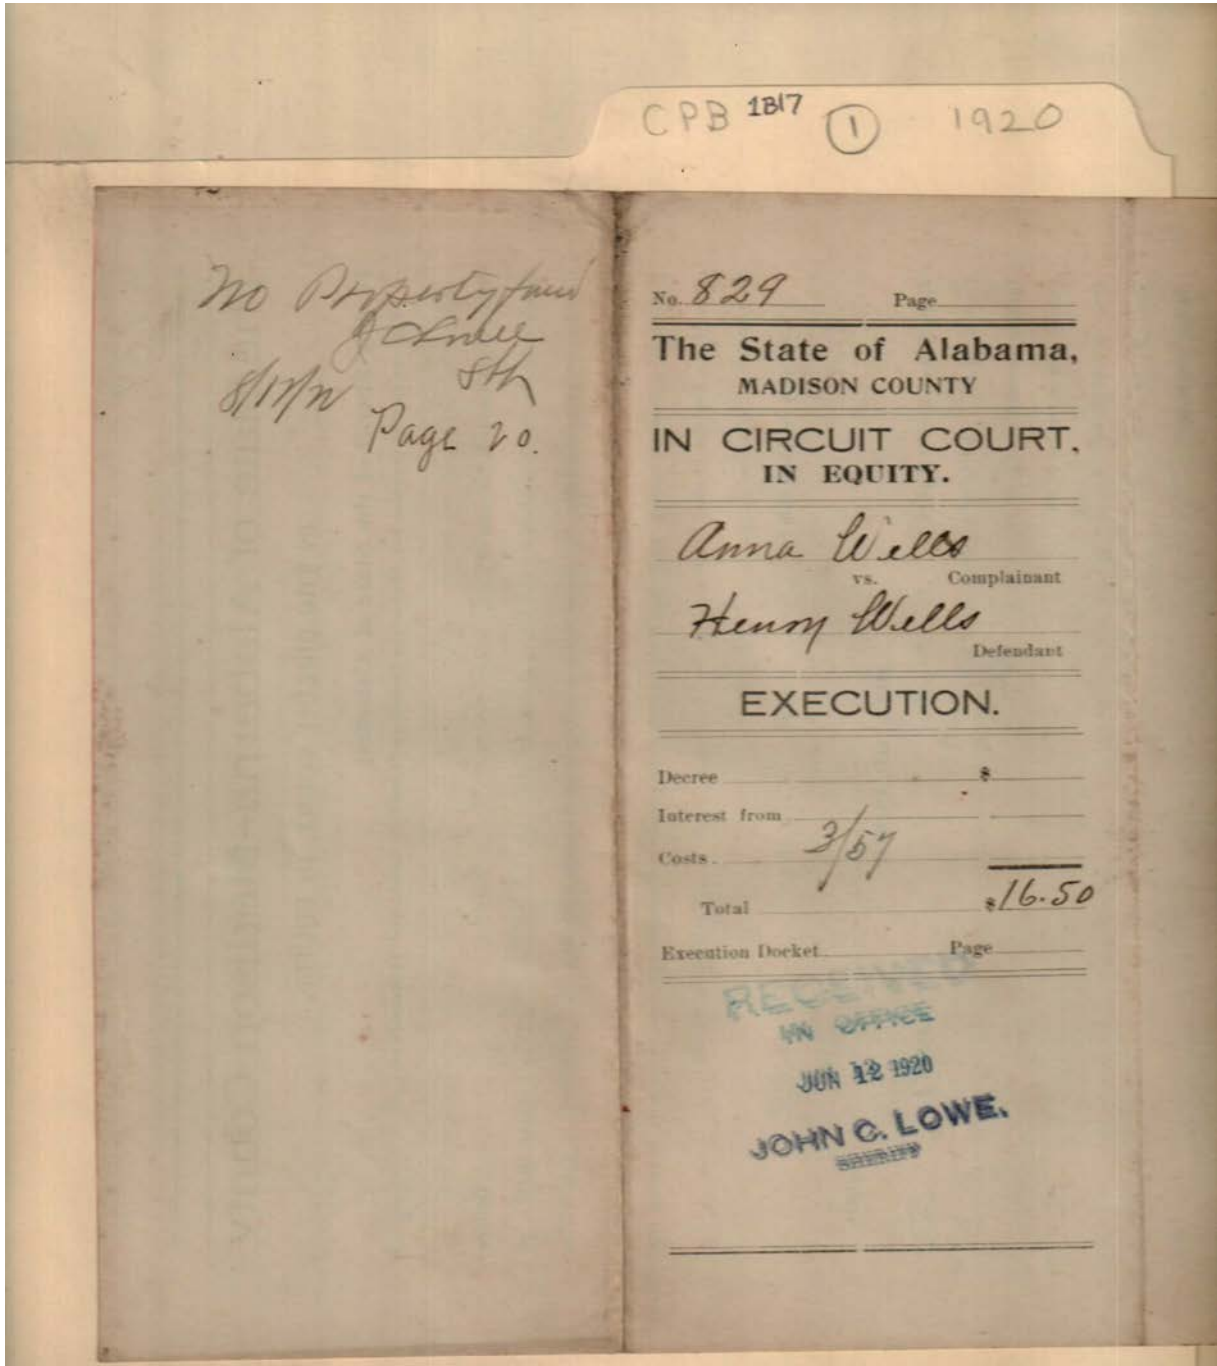 CPB 1B17 1 1920
No Property found
J C Lowe
Shff
Page 20.
No. 829 Page
The State of Alabama,
MADISON COUNTY
IN CIRCUIT COURT,
IN EQUITY.
Anna Wells
vs. Complainant
Henry Wells
Defendant
EXECUTION.
Decree $
Interest from
Costs 3/57
Total $16.50
Execution Docket Page
RECEIVED
IN OFFICE
JUN 12 1920
JOHN C. LOWE,
SHERIFF